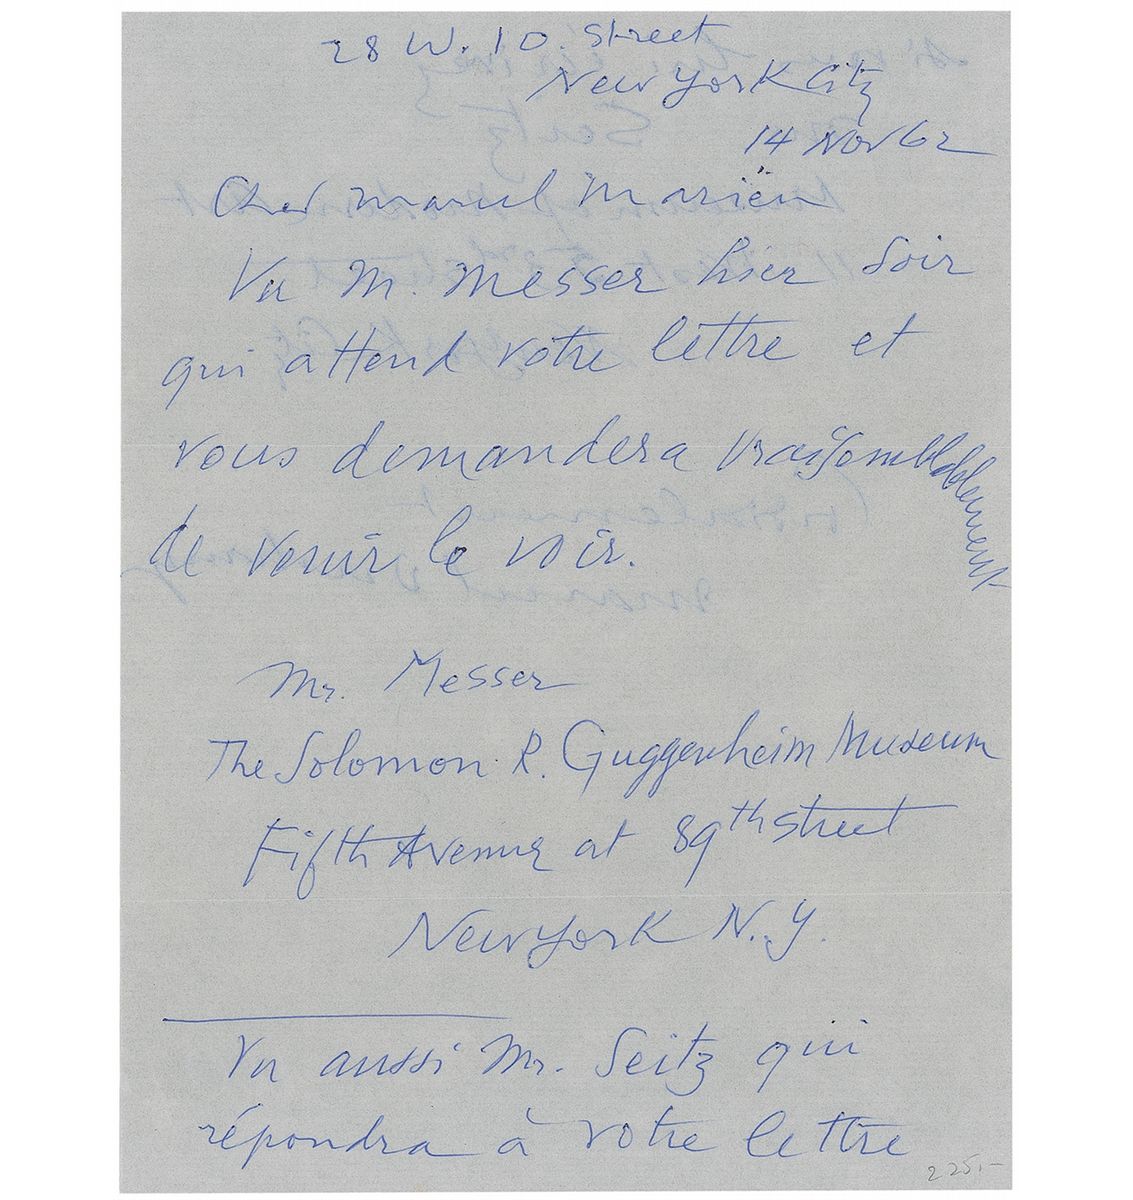 28 W. 10. Street
New York City
14 Nov 62
Cher Marcel Mariën
Vu M. Messer hier soir
qui attend votre lettre et
vous demandera vraissemblablement
de venir le voir.
Mr. Messer
The Solomon R. Guggenheim Museum
Fifth Avenue at 89th Street
New York N.Y.
Vu aussi Mr. Seitz qui
répondra à votre lettre
225.-